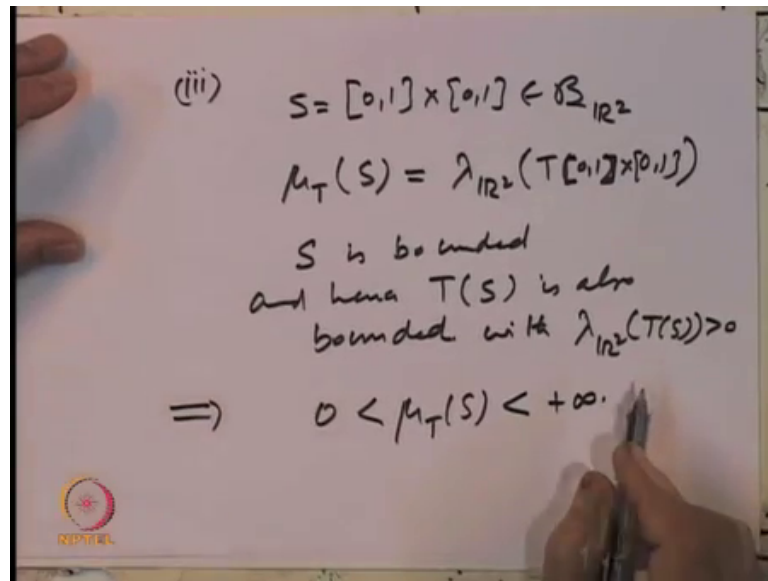 (iii) S = [0,1] × [0,1] ∈ 𝓑_{ℝ²}
μ_T(S) = λ_{ℝ²}(T[0,1]×[0,1])
S is bounded
and hence T(S) is also
bounded with λ_{ℝ²}(T(S))>0
⇒ 0 < μ_T(S) < +∞.
NPTEL